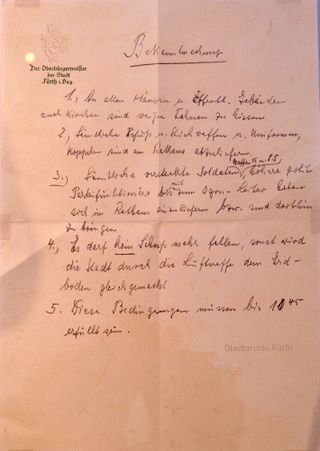 Der Oberbürgermeister
der Stadt
Fürth i. Bay.
Bekanntmachung
1.) An allen Häusern u. öffentl. Gebäuden
auch Kirchen sind weiße Fahnen zu hissen
2.) Sämtliche Schuß u. Stichwaffen u. Uniformen,
Koppeln sind am Rathaus abzuliefern.
3.) Sämtliche versteckte Soldaten, höhere polit.
Waffen SS
Parteifunktionäre bis zum Ogru-Leiter haben
sich im Rathaus einzuliefern bzw. sind dorthin
zu bringen.
4.) Es darf kein Schuß mehr fallen, sonst wird
die Stadt durch die Luftwaffe dem Erd-
boden gleichgemacht
5. Diese Bedingungen müssen bis 10 45
erfüllt sein.
Stadtarchiv Fürth